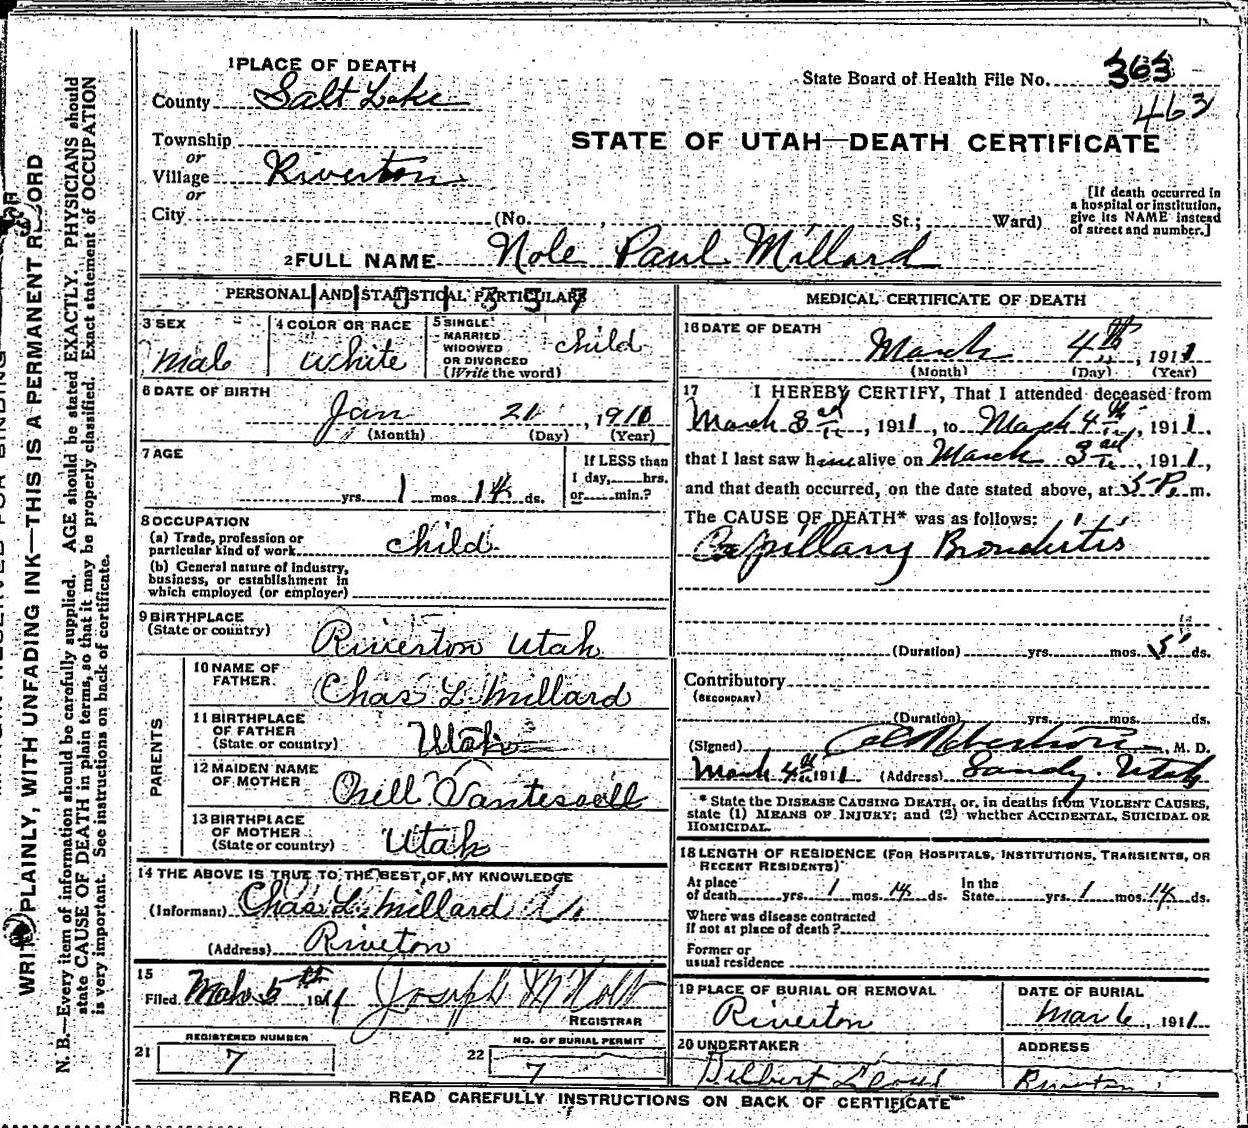 1 PLACE OF DEATH
County Salt Lake
Township
or
Village Riverton
or
City (No. , St.; Ward)
State Board of Health File No. 363
463
STATE OF UTAH—DEATH CERTIFICATE
[If death occurred in
a hospital or institution,
give its NAME instead
of street and number.]
2 FULL NAME Nole Paul Millard
PERSONAL AND STATISTICAL PARTICULARS
3 SEX
Male
4 COLOR OR RACE
White
5 SINGLE
MARRIED
WIDOWED
OR DIVORCED
(Write the word)
child
6 DATE OF BIRTH
Jan 21, 1911
(Month) (Day) (Year)
7 AGE
yrs. 1 mos. 14 ds.
If LESS than
1 day, hrs.
or min.?
8 OCCUPATION
(a) Trade, profession or
particular kind of work child
(b) General nature of industry,
business, or establishment in
which employed (or employer)
9 BIRTHPLACE
(State or country) Riverton Utah
PARENTS
10 NAME OF
FATHER Chas L. Millard
11 BIRTHPLACE
OF FATHER
(State or country) Utah
12 MAIDEN NAME
OF MOTHER
13 BIRTHPLACE
OF MOTHER
(State or country) Utah
14 THE ABOVE IS TRUE TO THE BEST OF MY KNOWLEDGE
(Informant) Chas L. Millard
(Address) Riverton
15
Filed Mch 5th 1911 Joseph M Holt
REGISTRAR
21 REGISTERED NUMBER
7
22 NO. OF BURIAL PERMIT
7
MEDICAL CERTIFICATE OF DEATH
16 DATE OF DEATH
March 4th, 1911
(Month) (Day) (Year)
17 I HEREBY CERTIFY, That I attended deceased from
March 3, 1911, to March 4th, 1911,
that I last saw him alive on March 3, 1911,
and that death occurred, on the date stated above, at 5 P. m.
The CAUSE OF DEATH* was as follows:
Capillary Bronchitis
(Duration) yrs. mos. 5 ds.
Contributory
(SECONDARY)
(Duration) yrs. mos. ds.
(Signed) Robertson, M. D.
March 4th 1911 (Address) Sandy, Utah
* State the DISEASE CAUSING DEATH, or, in deaths from VIOLENT CAUSES,
state (1) MEANS OF INJURY; and (2) whether ACCIDENTAL, SUICIDAL OR
HOMICIDAL.
18 LENGTH OF RESIDENCE (FOR HOSPITALS, INSTITUTIONS, TRANSIENTS, OR
RECENT RESIDENTS)
At place
of death yrs. 1 mos. 14 ds.
In the
State yrs. 1 mos. 14 ds.
Where was disease contracted
if not at place of death?
Former or
usual residence
19 PLACE OF BURIAL OR REMOVAL
Riverton
DATE OF BURIAL
Mar 6, 1911
20 UNDERTAKER
ADDRESS
Riverton
READ CAREFULLY INSTRUCTIONS ON BACK OF CERTIFICATE
WRITE PLAINLY, WITH UNFADING INK—THIS IS A PERMANENT RECORD
N. B.—Every item of information should be carefully supplied. AGE should be stated EXACTLY. PHYSICIANS should
state CAUSE OF DEATH in plain terms, so that it may be properly classified. Exact statement of OCCUPATION
is very important. See instructions on back of certificate.